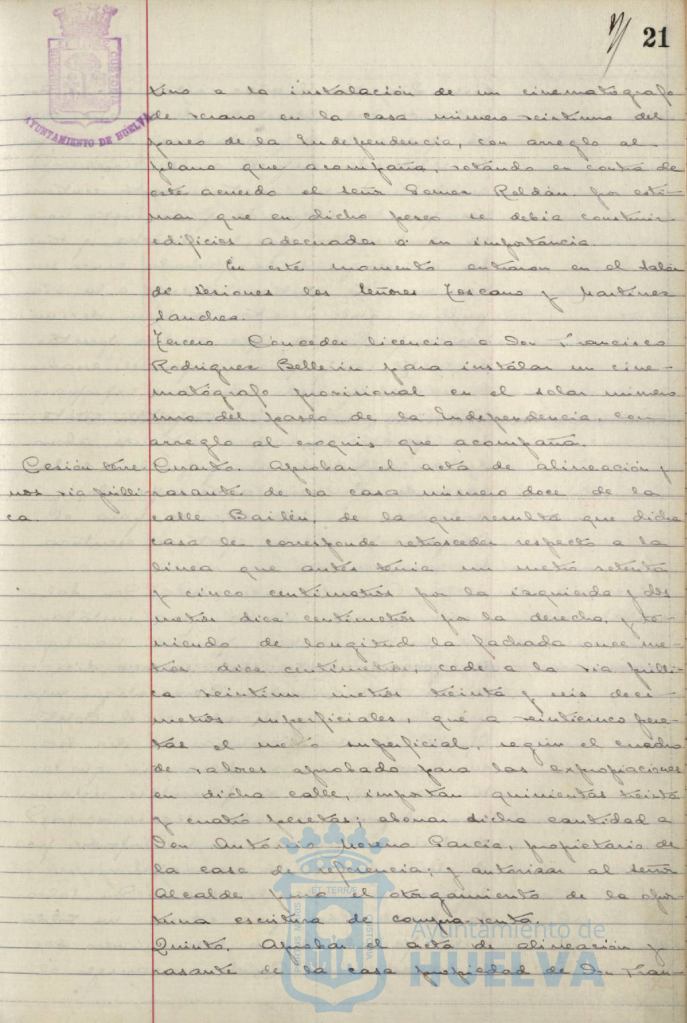 21
AYUNTAMIENTO DE HUELVA
tino a la instalación de un cinematógrafo
de verano en la casa número veintiuno del
paseo de la Independencia, con arreglo al
plano que acompaña, votando en contra de
este acuerdo el señor Gomez Roldán, por esti-
mar que en dicho paseo se debia construir
edificios adecuados a su importancia.
En este momento entraron en el Salón
de Sesiones los Señores Toscano y Martinez
Sanchez.
Tercero. Conceder licencia a Don Francisco
Rodriguez Bellerin para instalar un cine-
matógrafo provisional en el solar número
uno del paseo de la Independencia, con
arreglo al croquis que acompaña.
Cesión terre-
nos via públi-
ca.
Cuarto. Aprobar el acta de alineación y
rasante de la casa número doce de la
calle Bailén, de la que resulta que dicha
casa le corresponde retroceder respecto a la
linea que antes tenia un metro setenta
y cinco centimetros por la izquierda y dos
metros diez centimetros por la derecha, y te-
niendo de longitud la fachada once me-
tros diez centimetros, cede a la via públi-
ca veintiun metros treinta y seis deci-
metros superficiales, que a veinticinco pese-
tas el metro superficial, según el cuadro
de valores aprobado para las expropiaciones
en dicha calle, importan quinientas treinta
y cuatro pesetas; abonar dicha cantidad a
Don Antonio Moreno Garcia, propietario de
la casa de referencia; y autorizar al señor
Alcalde para el otorgamiento de la opor-
tuna escritura de compra-venta.
Quinto. Aprobar el acta de alineación y
rasante de la casa propiedad de Don Fran-
Ayuntamiento de
HUELVA